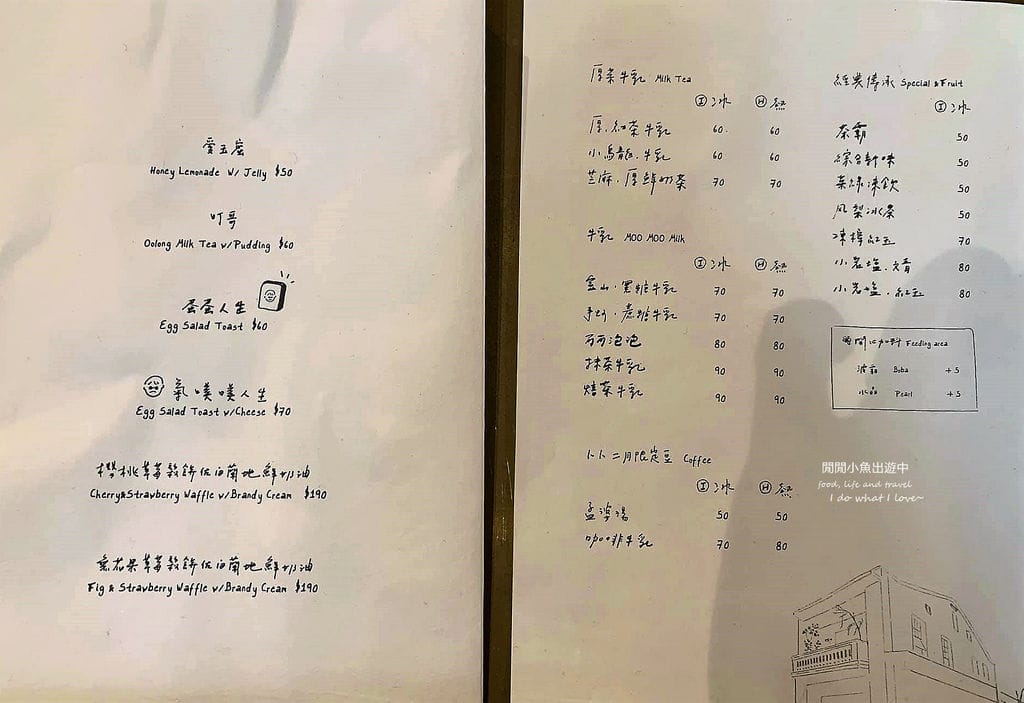 愛玉崔
Honey Lemonade w/ Jelly $50
叮哥
Oolong Milk Tea w/Pudding $60
蛋蛋人生
Egg Salad Toast $60
氣噗噗人生
Egg Salad Toast w/Cheese $70
櫻桃草莓鬆餅佐白蘭地鮮奶油
Cherry&Strawberry Waffle w/Brandy Cream $190
無花果草莓鬆餅佐白蘭地鮮奶油
Fig & Strawberry Waffle w/Brandy Cream $190
厚茶牛乳 Milk Tea
I 冰 H 熱
厚.紅茶牛乳 60 60
小烏龍.牛乳 60 60
芝麻.厚鮮奶茶 70 70
牛乳 Moo Moo Milk
I 冰 H 熱
黑糖牛乳 70 70
手炒.蔗糖牛乳 70 70
可可泡泡 80 80
抹茶牛乳 90 90
焙茶牛乳 90 90
卜卜二月限定豆 Coffee
I 冰 H 熱
孟婆湯 50 50
咖啡牛乳 70 80
經典傳承 Special & Fruit
I 冰
茶霸 50
綜合軒味 50
葉綠凍飲 50
鳳梨冰茶 50
凍檸紅玉 70
小岩塩. 80
小岩塩.紅玉 80
時間に加料 Feeding area
波霸 Boba +5
水晶 Pearl +5
閒閒小魚出遊中
food, life and travel
I do what I love~